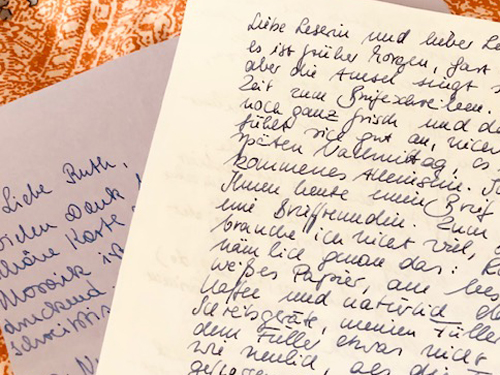 Liebe Leserin und lieber Le
es ist früher Morgen, fast
aber die Amsel singt s
Zeit zum Briefeschreiben.
noch ganz frisch und d
fühlt sich gut an, nicht
späten Nachmittag, es
kommenes Alleinsein. I
Ihnen heute einen Brief
eine Brieffreundin. Zum
brauche ich nicht viel,
nämlich genau das:
weißes Papier, am be
Kaffee und natürlich
Schreibgeräte, meinen Füller
dem Füller etwas nicht
wie neulich, als die
Liebe Ruth,
vielen Dank
schöne Karte
Mosaik ist
druckend.